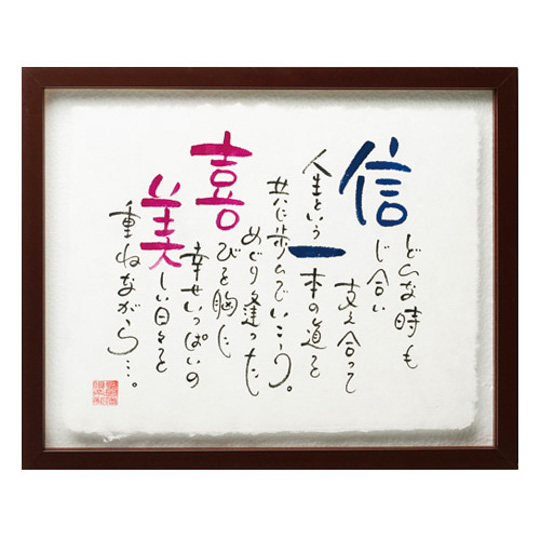 どんな時も
信じ合い
支え合って
人生という一本の道を
共に歩んでいこう。
めぐり逢った
喜びを胸に
幸せいっぱいの
美しい日々を
重ねながら…。